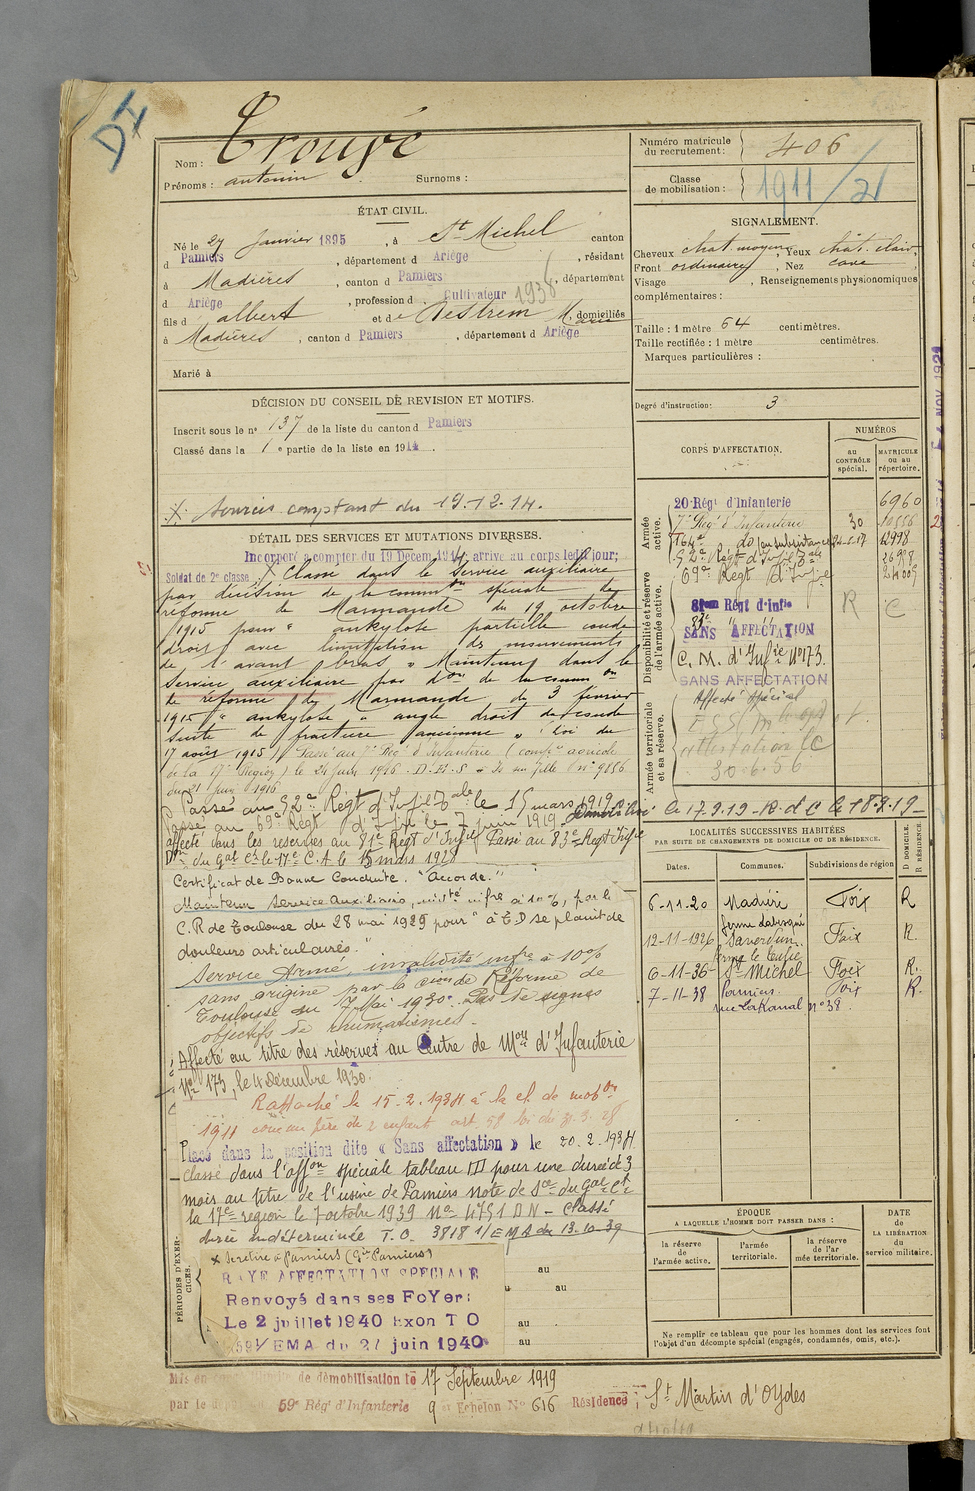 DI
Nom : Trouvé
Prénoms : antonin Surnoms :
Numéro matricule du recrutement : 406
Classe de mobilisation : 1911/21
ÉTAT CIVIL.
Né le 27 Janvier 1895, à St Michel canton
d Pamiers, département d Ariège, résidant
à Madières, canton d Pamiers, département
d Ariège, profession d Cultivateur 1938
fils d albert et de Destrem Marie domiciliés
à Madières, canton d Pamiers, département d Ariège
Marié à
SIGNALEMENT.
Cheveux chat. moyen, Yeux chât. clair,
Front ordinaire, Nez cave
Visage , Renseignements physionomiques
complémentaires :
Taille : 1 mètre 64 centimètres.
Taille rectifiée : 1 mètre centimètres.
Marques particulières :
Degré d'instruction : 3
DÉCISION DU CONSEIL DE REVISION ET MOTIFS.
Inscrit sous le n° 137 de la liste du canton d Pamiers
Classé dans la 1e partie de la liste en 1914.
X Sourcis comptant du 19.12.14.
DÉTAIL DES SERVICES ET MUTATIONS DIVERSES.
Incorporé à compter du 19 Décem. 1914, arrivé au corps ledit jour;
Soldat de 2e classe X Classé dans le Service auxiliaire
par décision de la common spéciale de
réforme de Marmande du 19 octobre
1915 pour " ankylose partielle coude
droit avec limitation des mouvements
de l'avant bras " Maintenu dans le
service auxiliaire par Don de la common
de réforme de Marmande du 3 février
191 " ankylose à angle droit du coude
suite de fracture ancienne " (loi du
17 août 1915) Passé au 7e Reg' d'Infanterie (
de la 17e Région) le 24 juin 1916. D.M.S n° 9856
du 21 juin 1916
Passé au 52e Régt d'Infie Colale le 15 mars 1919
Passé au 69e Régt d'Infie le 7 juin 1919 Démobilisé le 17.9.19 - R.d C le 18.9.19
affecté dans les réserves au 81e Régt d'Infie Passé au 83e Régt Infie
Don du Gal Ct le 17e C.A le 15 mars 1928
Certificat de Bonne Conduite. "Accordé."
Maintenu Service Auxiliaire, invté infre à 10%, par la
C.R de Toulouse du 28 mai 1929 pour " à T.D se plaint de
douleurs articulaires. "
Service Armé, invalidité infre à 10%
sans origine par la cion de Réforme de
Toulouse du 7 Mai 1930. Pas de signes
objectifs de rhumatismes.
Affecté au titre des réserves au Centre de Mon d'Infanterie
No 173, le 4 Décembre 1930.
Rattaché le 15-2.1934 à la cl. de mobon
1911 comme père de 2 enfant art. 58 loi du 31.3.28
Placé dans la position dite « Sans affectation » le 20.2.1934
Classé dans l'affon spéciale tableau III pour une durée de 3
mois au titre de l'usine de Pamiers note de Sce du Gal Ct
la 17e région le 7 octobre 1939 No 4751 DN - Classé
durée indéterminée T.O. 3818 1/EMA du 13.10.39
X Se retire à Pamiers (Gie Pamiers)
RAYÉ AFFECTATION SPECIALE
Renvoyé dans ses FoYer:
Le 2 juillet 1940 Exon T O
591/EMA du 27 juin 1940
PÉRIODES D'EXERCICES.
au
au
au
au
CORPS D'AFFECTATION.
NUMÉROS
au CONTRÔLE spécial.
MATRICULE ou au répertoire.
Armée active.
20 Rég' d'Infanterie 6960
7e Rég' d'Infanterie 30 10556
164e do (en subsistance) 24-5-17 12998
52e Regt d'Infie Colale 26978
69e Regt d'Infie
Disponibilité et réserve de l'armée active.
81em Régt d'Infie R C
83e
SANS AFFECTATION
C. M. d'Infie N°173.
SANS AFFECTATION
Armée territoriale et sa réserve.
Affecté spécial
30.6.56
LOCALITÉS SUCCESSIVES HABITÉES
PAR SUITE DE CHANGEMENTS DE DOMICILE OU DE RÉSIDENCE.
Dates. Communes. Subdivisions de région D DOMICILE. R RÉSIDENCE.
6-11-20 Madière Foix R
12-11-1926 Saverdun Foix R.
6-11-36 St Michel Foix R.
7-11-38 Pamiers Foix R.
rue Lakanal n° 38.
ÉPOQUE
A LAQUELLE L'HOMME DOIT PASSER DANS :
la réserve de l'armée active.
l'armée territoriale.
la réserve de l'armée territoriale.
DATE de LA LIBÉRATION du service militaire.
Ne remplir ce tableau que pour les hommes dont les services font
l'objet d'un décompte spécial (engagés, condamnés, omis, etc.).
Mis en de démobilisation le 17 Septembre 1919
par le dépôt 59e Rég' d'Infanterie 9e Echelon N° 616 Résidence : St Martin d'Oydes